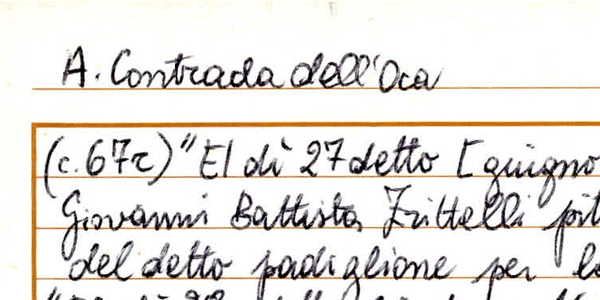 A. Contrada dell'Oca
(c. 67r) "El dì 27 detto [giugno
Giovanni Battista Frittelli pit
del detto padiglione per